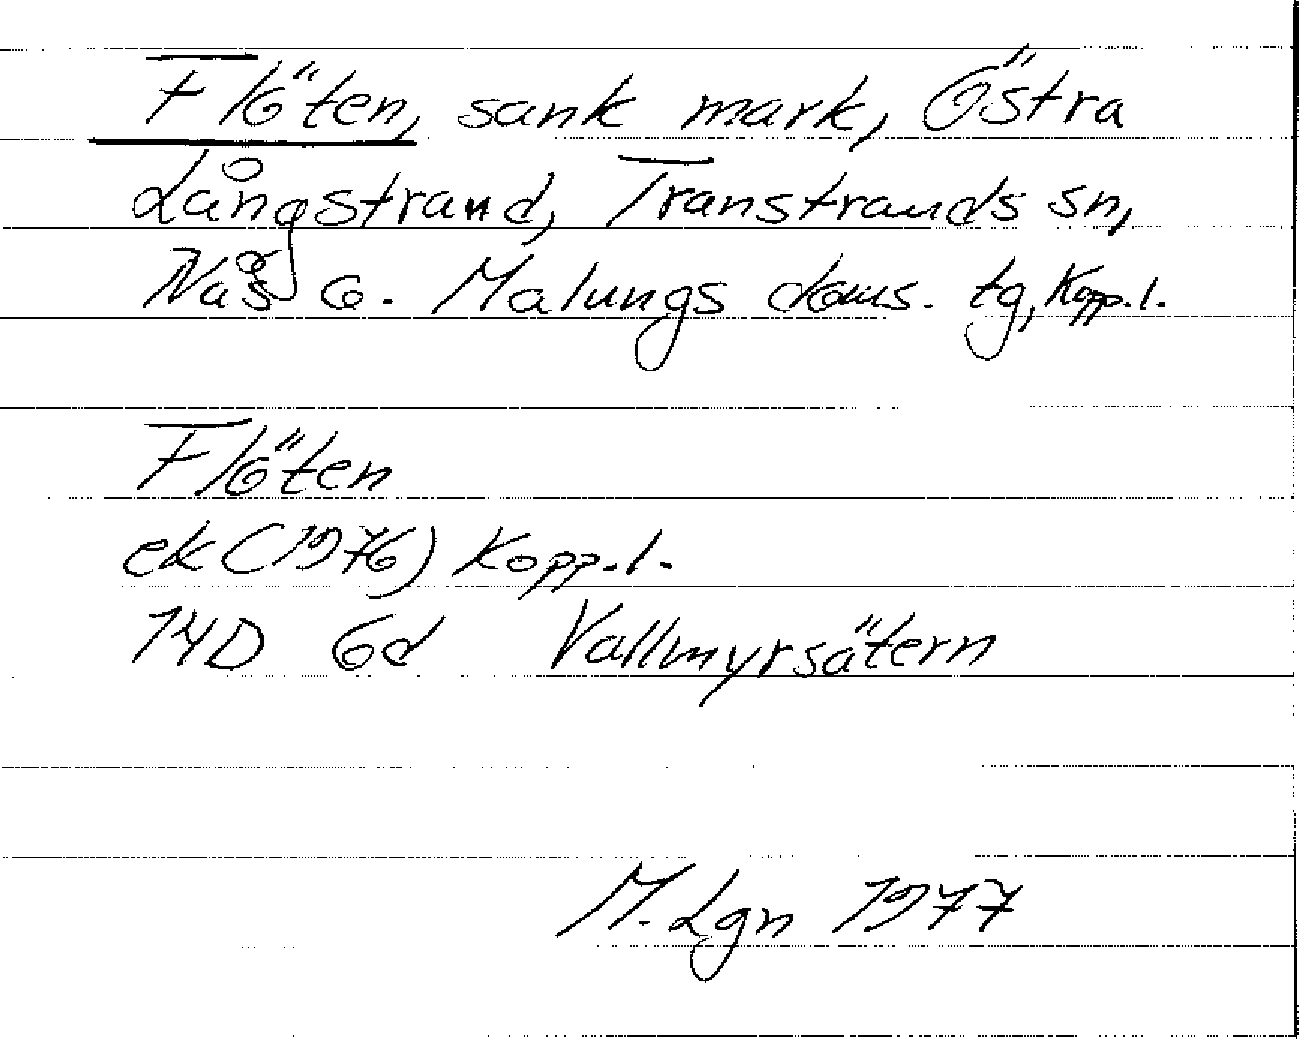 Flöten, sank mark, Östra
Långstrand, Transtrands sn,
Nås o. Malungs doms. tg, Kopp.l.
Flöten
ek (1976) Kopp.l.
14D 6d Vallmyrsätern
M. Lgn 1977